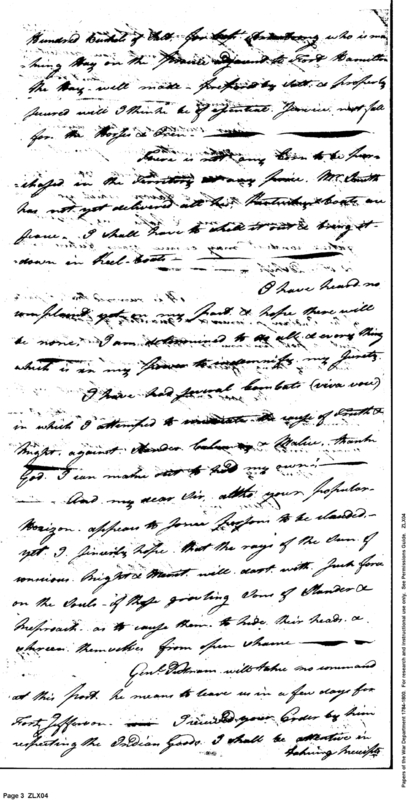 Hundred Bushel of Salt for Capt Armstrong who is ma
king Hay on the Prairie adjacent to Fort Hamilton
the Hay well made - preserved by Salt & properly
secured will I think be of essential Service next fall
for the Horses &
There is not any Corn to be pur
chased in the Territory at any price. Mr. Smith
has not yet delivered all his boats are
I shall have to it out & bring it
down in Keel boats
I have heard no
complaint yet on my part & hope there will
be none. I am determined to do all & every thing
which is in my power to indemnify my Surety
I have had several Combats (viva voce)
in which I attempted to the cause of Truth &
Right, against Slander & Malice, thank
God I can make out to hold my own
And my dear Sir, altho your popular
Horizon appears to some Persons to be clouded
yet I sincerely hope that the rays of the Sun of
conscious Right & Merit will dart with such force
on the Souls of those Sons of Slander &
Reproach as to cause them to hide their heads &
screen themselves from open shame
Genl Putnam will take no command
at this post he means to leave us in a few days for
Fort Jefferson I received your Order by him
respecting the Indian Goods I shall be attentive in
taking receipts
Page 3 ZLX04
Papers of the War Department 1784-1800. For research and instructional use only. See Permissions Guide. ZLX04